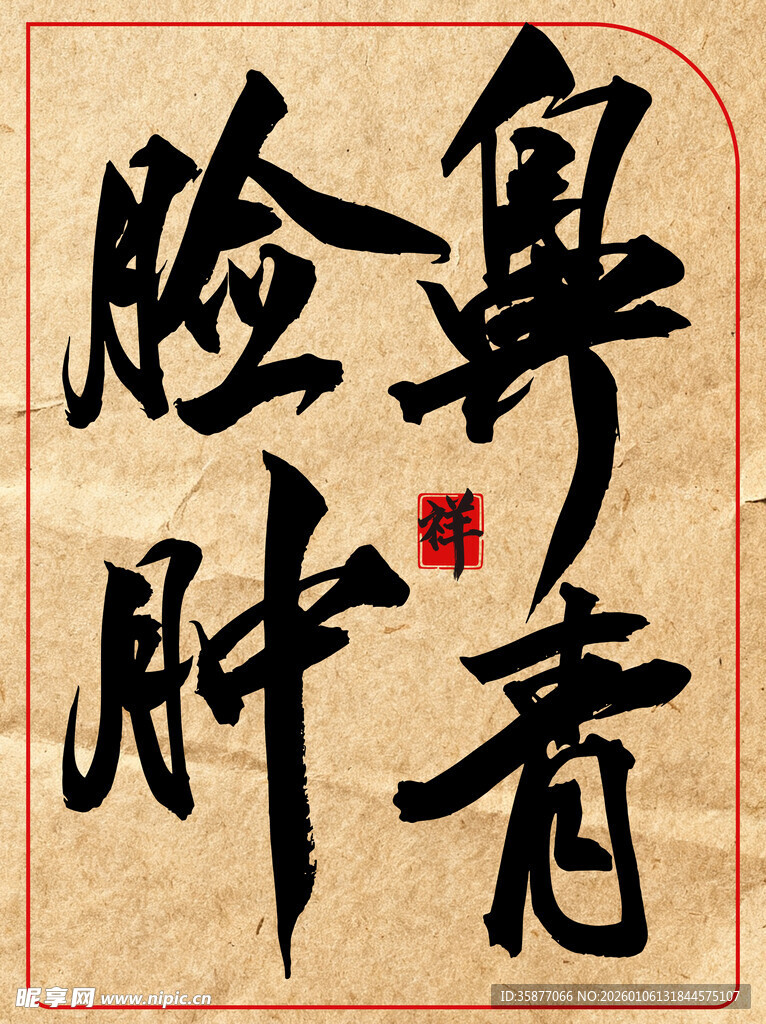 鼻青
脸肿
祥
昵享网 www.nipic.cn
ID:35877066 NO:20260106131844575107